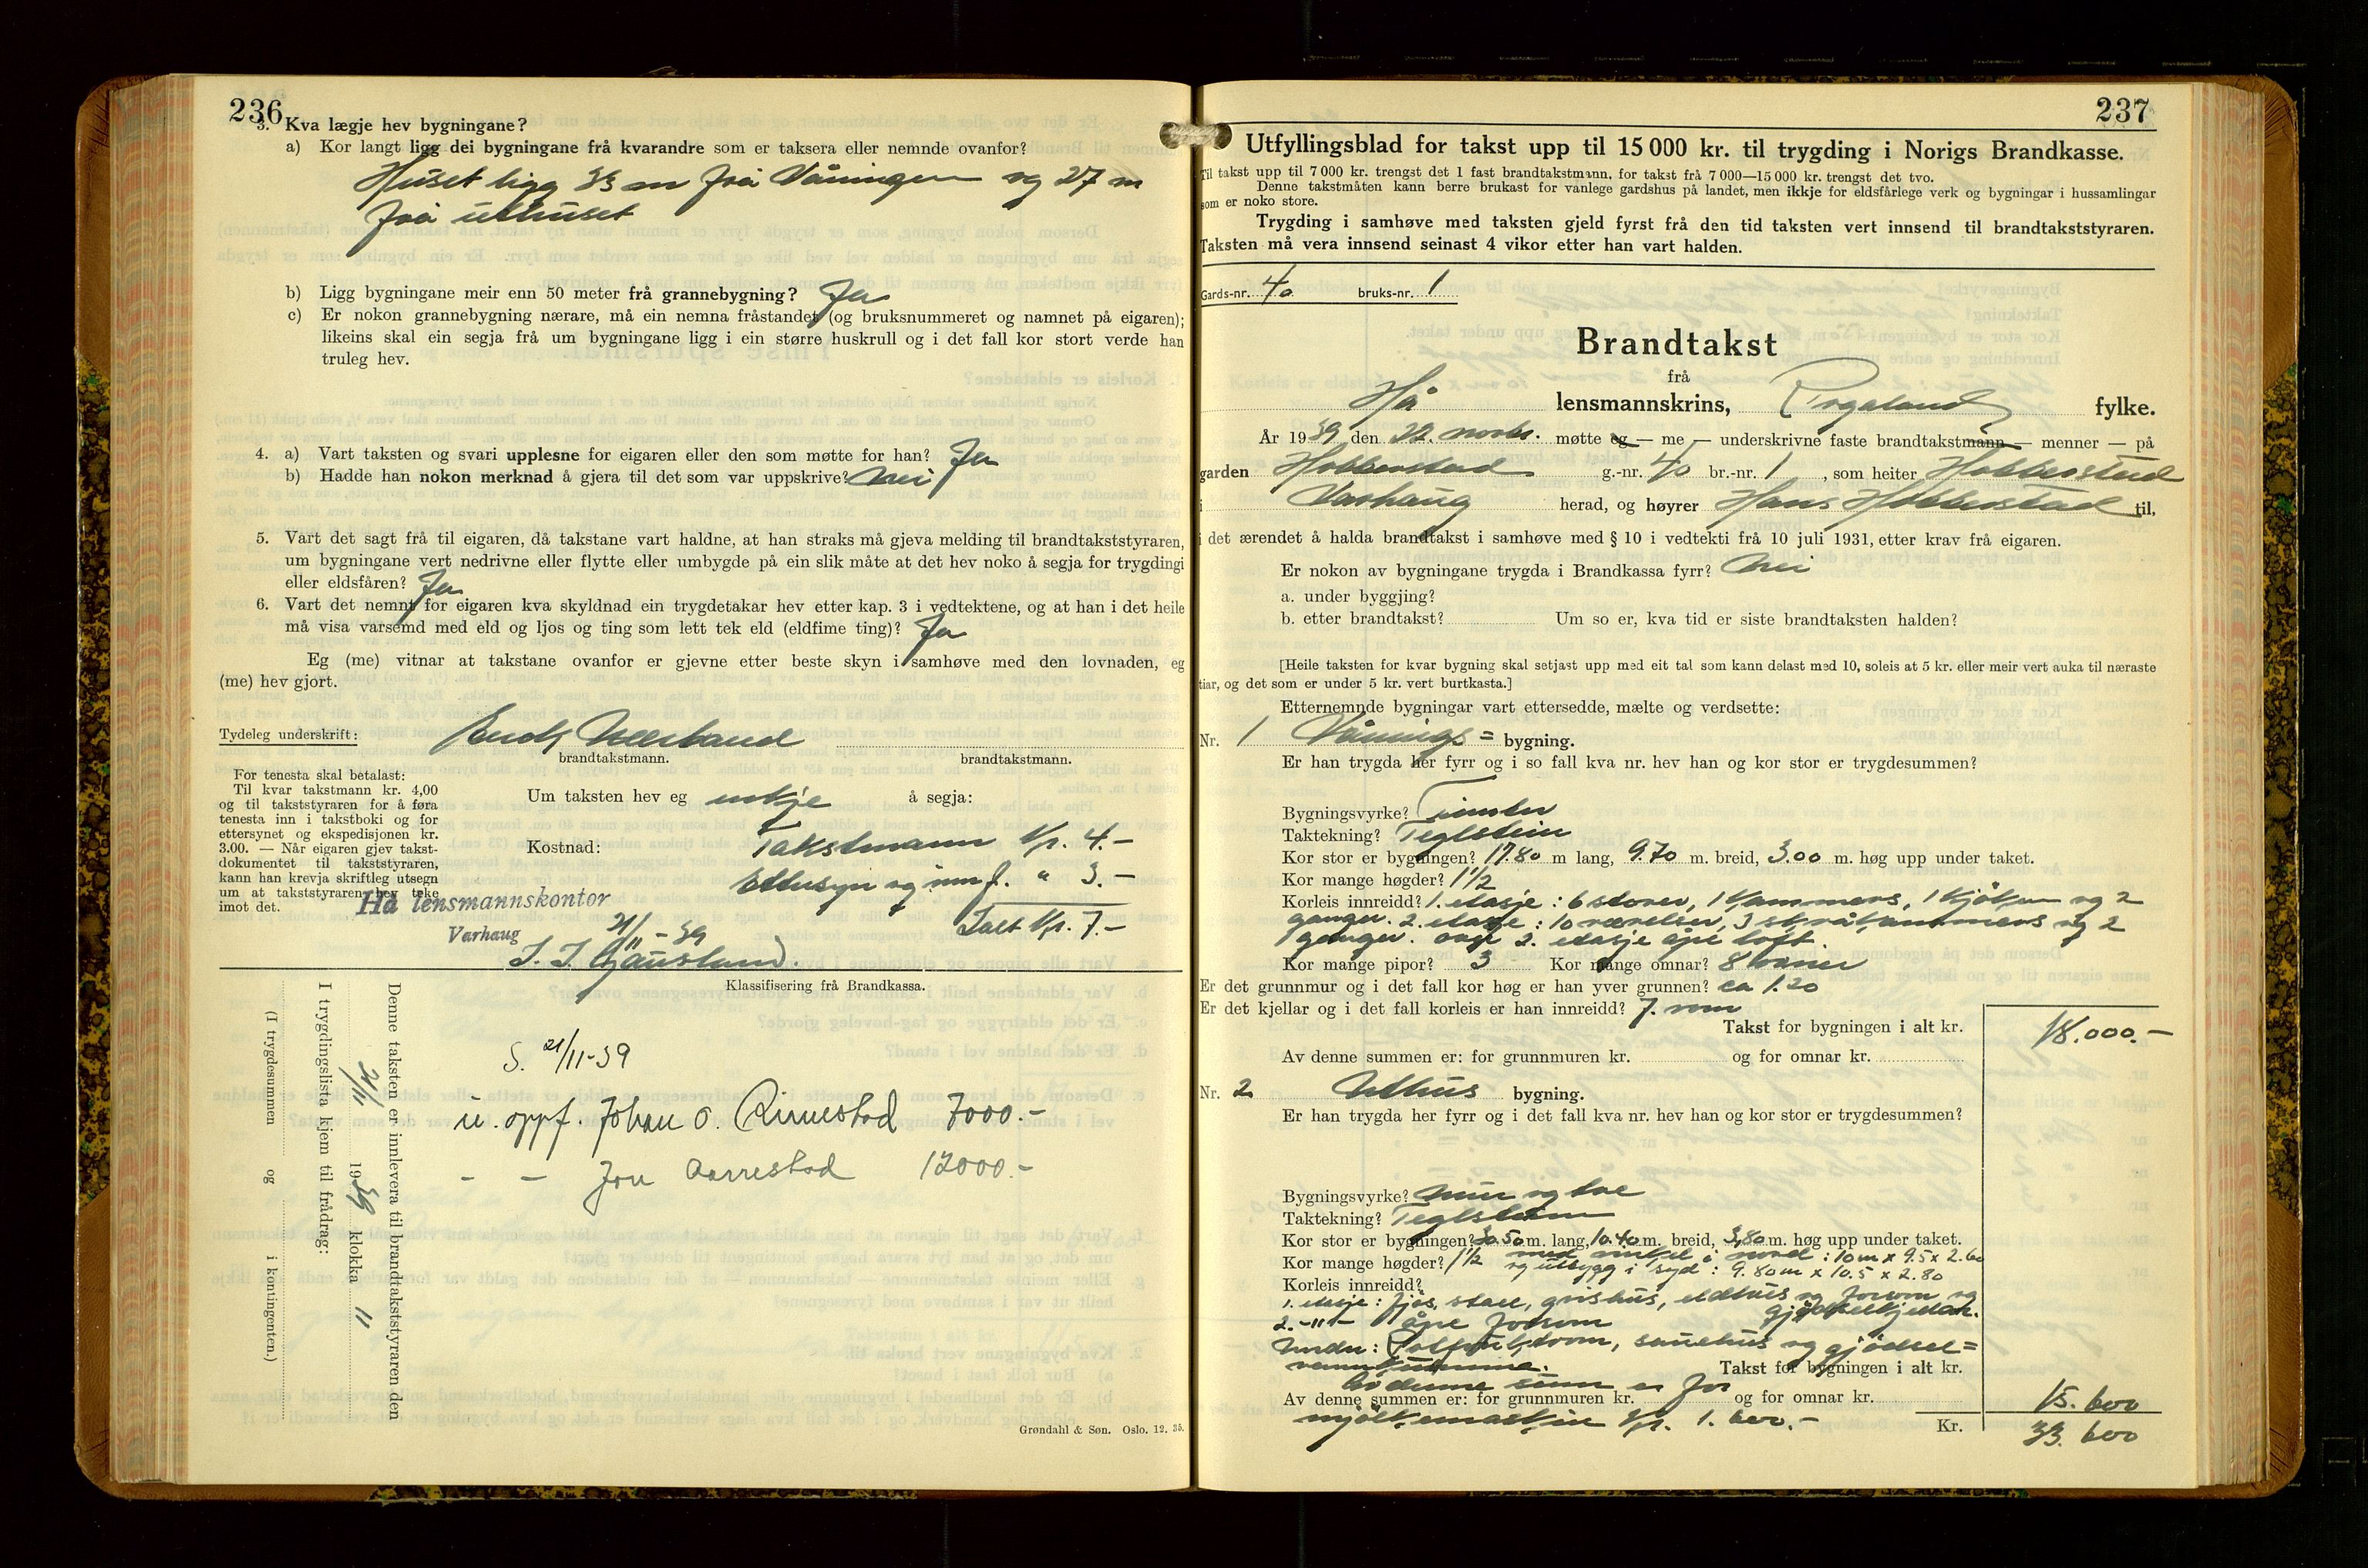 236
3. Kva lægje hev bygningane?
a) Kor langt ligg dei bygningane frå kvarandre som er taksera eller nemnde ovanfor?
Huset ligg 33 m frå Våningen og 27 m
frå uthuset
b) Ligg bygningane meir enn 50 meter frå grannebygning? Ja
c) Er nokon grannebygning nærare, må ein nemna fråstandet (og bruksnummeret og namnet på eigaren);
likeins skal ein segja frå um bygningane ligg i ein større huskrull og i det fall kor stort verde han
truleg hev.
4. a) Vart taksten og svari upplesne for eigaren eller den som møtte for han? Ja
b) Hadde han nokon merknad å gjera til det som var uppskrive? Nei
5. Vart det sagt frå til eigaren, då takstane vart haldne, at han straks må gjeva melding til brandtakststyraren,
um bygningane vert nedrivne eller flytte eller umbygde på ein slik måte at det hev noko å segja for trygdingi
eller eldsfåren? Ja
6. Vart det nemnt for eigaren kva skyldnad ein trygdetakar hev etter kap. 3 i vedtektene, og at han i det heile
må visa varsemd med eld og ljos og ting som lett tek eld (eldfime ting)? Ja
Eg (me) vitnar at takstane ovanfor er gjevne etter beste skyn i samhøve med den lovnaden, eg
(me) hev gjort.
Tydeleg underskrift:
brandtakstmann. brandtakstmann.
For tenesta skal betalast:
Til kvar takstmann kr. 4,00
og til takststyraren for å føra
tenesta inn i takstboki og for
ettersynet og ekspedisjonen kr.
3.00. — Når eigaren gjev takst-
dokumentet til takststyraren,
kann han krevja skriftleg utsegn
um at takststyraren hev teke
imot det.
Um taksten hev eg inkje å segja:
Kostnad: Takstmann Kr. 4.-
Ettersyn og innf. " 3.-
Ialt Kr. 7.-
Hå lensmannskontor
Varhaug 21/11 - 39
J. J. Gausland.
Klassifisering frå Brandkassa.
S. 21/11-39
u. oppf. Johan O. Rimestad 7000.-
- - Jon Aarrestad 12000.-
Denne taksten er innlevera til brandtakststyraren den
21/11 1939 klokka 11
I trygdingslista kjem til frådrag:
(I trygdesummen og i kontingenten.)
Grøndahl & Søn. Oslo. 12. 35.
237
Utfyllingsblad for takst upp til 15 000 kr. til trygding i Norigs Brandkasse.
Til takst upp til 7 000 kr. trengst det 1 fast brandtakstmann, for takst frå 7 000—15 000 kr. trengst det tvo.
Denne takstmåten kann berre brukast for vanlege gardshus på landet, men ikkje for eldsfårlege verk og bygningar i hussamlingar
som er noko store.
Trygding i samhøve med taksten gjeld fyrst frå den tid taksten vert innsend til brandtakststyraren.
Taksten må vera innsend seinast 4 vikor etter han vart halden.
Gards-nr. 40 bruks-nr. 1
Brandtakst
frå
Hå lensmannskrins, Rogaland fylke.
År 1939, den 22. novbr. møtte eg — me — underskrivne faste brandtakstmann — menner — på
garden Hobberstad g.-nr. 40 br.-nr. 1, som heiter Hobberstad
i Varhaug herad, og høyrer Hans Hobberstad til,
i det ærendet å halda brandtakst i samhøve med § 10 i vedtekti frå 10 juli 1931, etter krav frå eigaren.
Er nokon av bygningane trygda i Brandkassa fyrr? Nei
a. under byggjing?
b. etter brandtakst? Um so er, kva tid er siste brandtaksten halden?
[Heile taksten for kvar bygning skal setjast upp med eit tal som kann delast med 10, soleis at 5 kr. eller meir vert auka til næraste
tiar, og det som er under 5 kr. vert burtkasta.]
Etternemnde bygningar vart ettersedde, mælte og verdsette:
Nr. 1 Vånings= bygning.
Er han trygda her fyrr og i so fall kva nr. hev han og kor stor er trygdesummen?
Bygningsvyrke? Timber
Taktekning? Teglstein
Kor stor er bygningen? 17.80 m lang, 9.70 m. breid, 3.00 m. høg upp under taket.
Kor mange høgder? 1 1/2
Korleis innreidd? 1. etasje: 6 stover, 1 kammers, 1 kjøken og 2
ganger. 2. etasje: 10 værelser, 3 skråkammers og 2
ganger. over 2. etasje åpe loft.
Kor mange pipor? 3 Kor mange omnar? 8 omner
Er det grunnmur og i det fall kor høg er han yver grunnen? ca 1.20
Er det kjellar og i det fall korleis er han innreidd? 7. rom
Takst for bygningen i alt kr. 18.000.-
Av denne summen er: for grunnmuren kr. og for omnar kr.
Nr. 2 Uthus bygning.
Er han trygda her fyrr og i det fall kva nr. hev han og kor stor er trygdesummen?
Bygningsvyrke? mur og tre
Taktekning? Teglstein
Kor stor er bygningen? 30.50 m. lang, 10.40 m. breid, 3,80 m. høg upp under taket.
Kor mange høgder? 1 1/2 med vinkel i nord: 10 m x 9.5 x 2.60
og utbygg i syd: 9.80 m x 10.5 x 2.80
Korleis innreidd?
1. etasje: fjøs, stall, grishus, eldhus og forrom og
gjødselkjellar.
2. -"- åpe forrom
Under: Potfruktrom, sauehus og gjødsel=
Takst for bygningen i alt kr.
Av denne sum er for
Av denne summen er: for grunnmuren kr. og for omnar kr. 15.600
mjølkemaskin kr. 1.600.-
Kr. 33.600